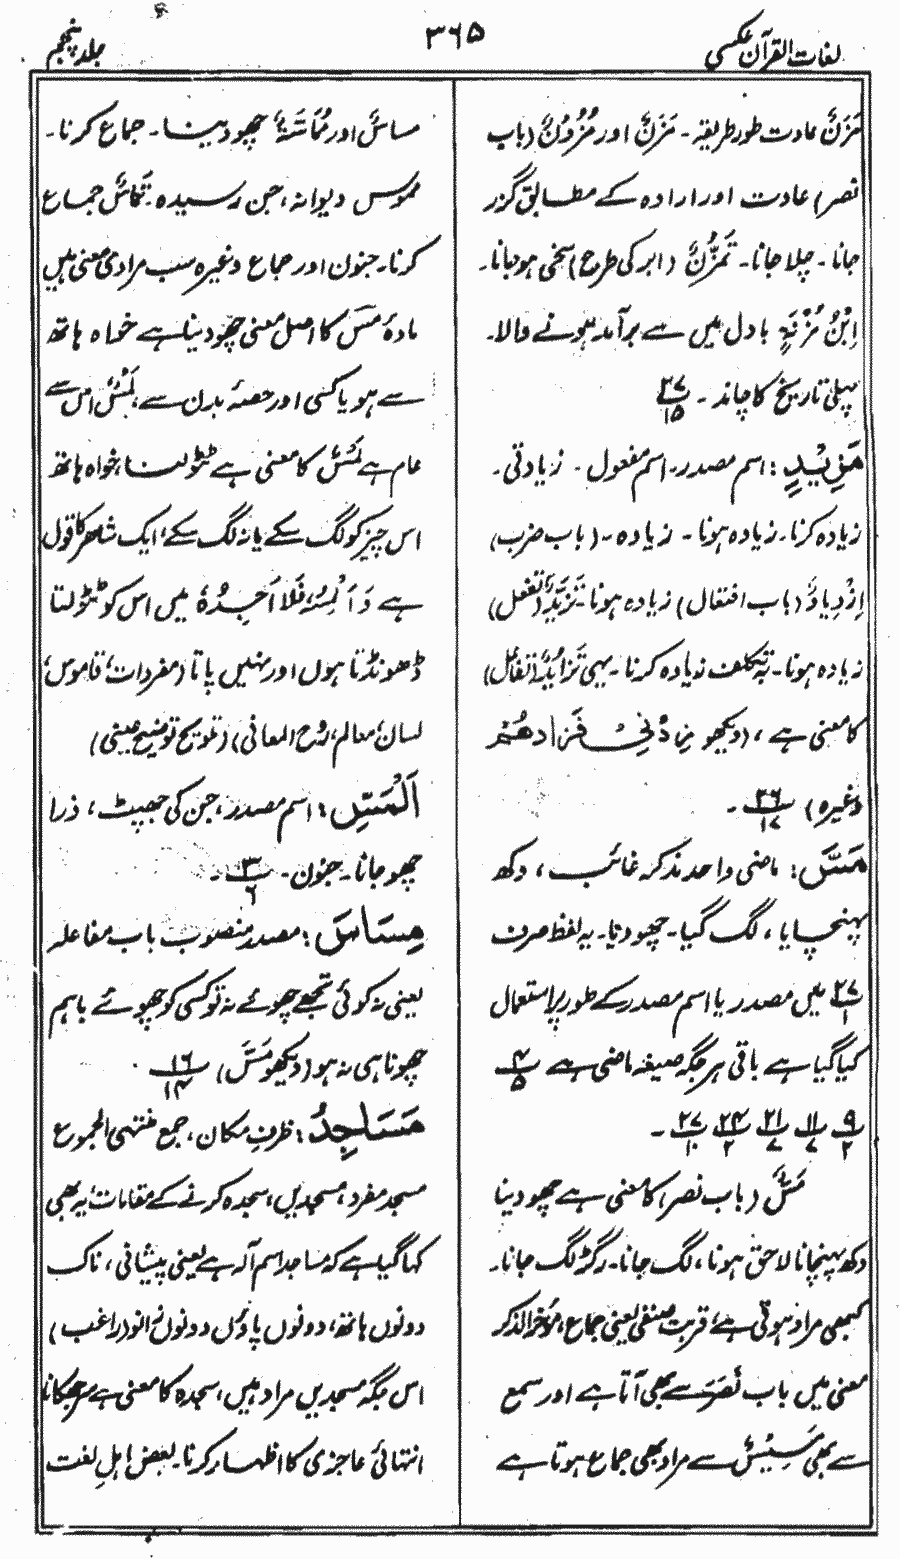 لغات القرآن عکسی
۳۶۵
جلد پنجم
مَزَنٌ عادت طور طریقہ ۔ مَزَنٌ اور مُزُونٌ (باب
نصر) عادت اور ارادہ کے مطابق گزر
جانا ۔ چلا جانا ۔ تَمَزُّنٌ (ابر کی طرح) سخی ہو جانا ۔
اِبْنُ مُزْنَۃٍ بادل میں سے برآمد ہونے والا ۔
پہلی تاریخ کا چاند ۔ ۲۷/۱۵
مَزِیْدٍ : اسم مصدر ۔ اسم مفعول ۔ زیادتی ۔
زیادہ کرنا ۔ زیادہ ہونا ۔ زیادہ ۔ (باب ضرب)
اِزْدِیَادٌ (باب افتعال) زیادہ ہونا ۔ تَزَیُّدٌ (تفعل)
زیادہ ہونا ۔ بہ تکلف زیادہ کرنا ۔ یہی تَزَایُدٌ (تفاعل)
کا معنی ہے ، (دیکھو زِدْنِیْ فَزَادَھُمْ
وغیرہ) ۲۶/۱۷ ۔
مَسَّ : ماضی واحد مذکر غائب ، دکھ
پہنچایا ، لگ گیا ۔ چھو دیا ۔ یہ لفظ صرف
۲۷/۱ میں مصدر یا اسم مصدر کے طور پر استعمال
کیا گیا ہے باقی ہر جگہ صیغہ ماضی ہے ۴/۵
۹/۲ ۱۱/۷ ۲۱/۷ ۲۴/۲ ۲۷/۱۰ ۔
مَسٌّ (باب نصر) کا معنی ہے چھو دینا
دکھ پہنچانا لاحق ہونا ، لگ جانا ۔ رگڑ لگ جانا ۔
کبھی مراد ہوتی ہے قربت صنفی یعنی جماع ، مؤخر الذکر
معنی میں باب نَصَرَ سے بھی آتا ہے اور سمع
سے بھی مَسِیْسٌ سے مراد بھی جماع ہوتا ہے
مساسٌ اور مُمَاسَّۃٌ چھو دینا ۔ جماع کرنا ۔
مموس دیوانہ ، جن رسیدہ ۔ تَمَاسٌّ جماع
کرنا ۔ جنون اور جماع وغیرہ سب مرادی معنی ہیں
مادۂ مَسّ کا اصل معنی چھو دینا ہے خواہ ہاتھ
سے ہو یا کسی اور حصۂ بدن سے ، لَمْسٌ اس سے
عام ہے لَمْسٌ کا معنی ہے ٹٹولنا خواہ ہاتھ
اس چیز کو لگ سکے یا نہ لگ سکے ، ایک شاعر کا قول
ہے وَاَلْمِسُہٗ فَلَا اَجِدُہٗ میں اس کو ٹٹولتا
ڈھونڈتا ہوں اور نہیں پاتا (مفردات ، قاموس ،
لسان ، معالم ، روح المعانی) (تلویح توضیح عینی)
اَلْمَسِّ : اسم مصدر ، جن کی جھپٹ ، ذرا
چھو جانا ۔ جنون ۔ ۳/۶ ۔
مِسَاسَ : مصدر منصوب باب مفاعلہ
یعنی نہ کوئی تجھے چھوئے نہ تو کسی کو چھوئے باہم
چھونا ہی نہ ہو (دیکھو مَسَّ) ۱۶/۱۴ ۔
مَسَاجِدُ : ظرف مکان ، جمع منتہی الجموع
مسجد مفرد ، مسجدیں ، سجدہ کرنے کے مقامات ، یہ بھی
کہا گیا ہے کہ مساجد اسم آلہ ہے یعنی پیشانی ، ناک
دونوں ہاتھ ، دونوں پاؤں دونوں زانو (راغب)
اس جگہ مسجدیں مراد ہیں ، سجدہ کا معنی ہے سر جھکانا
انتہائی عاجزی کا اظہار کرنا ۔ بعض اہلِ لغت